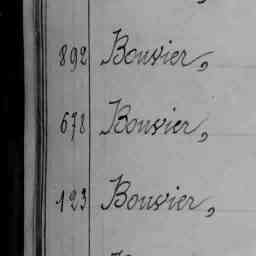 892 Bouvier,
678 Bouvier,
123 Bouvier,